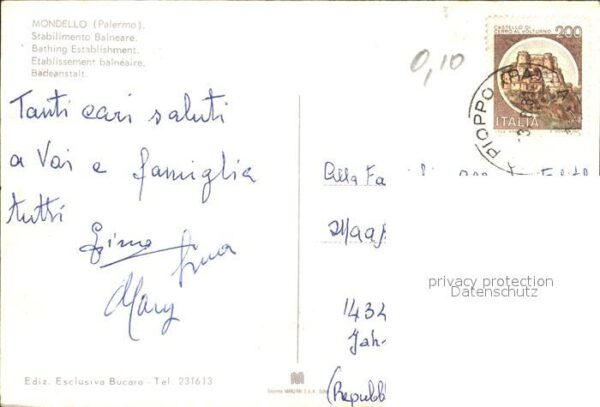 MONDELLO (Palermo).
Stabilimento Balneare.
Bathing Establishment.
Etablissement balnéaire.
Badeanstalt.
0,10
CASTELLO DI
CERRO AL VOLTURNO
200
ITALIA
PIOPPO (PA)
Tanti cari saluti
a Voi e famiglia
tutti
Mary
Alla Fa
privacy protection
Datenschutz
1434
Jah-
(Repubb
Ediz. Esclusiva Bucaro - Tel. 231613